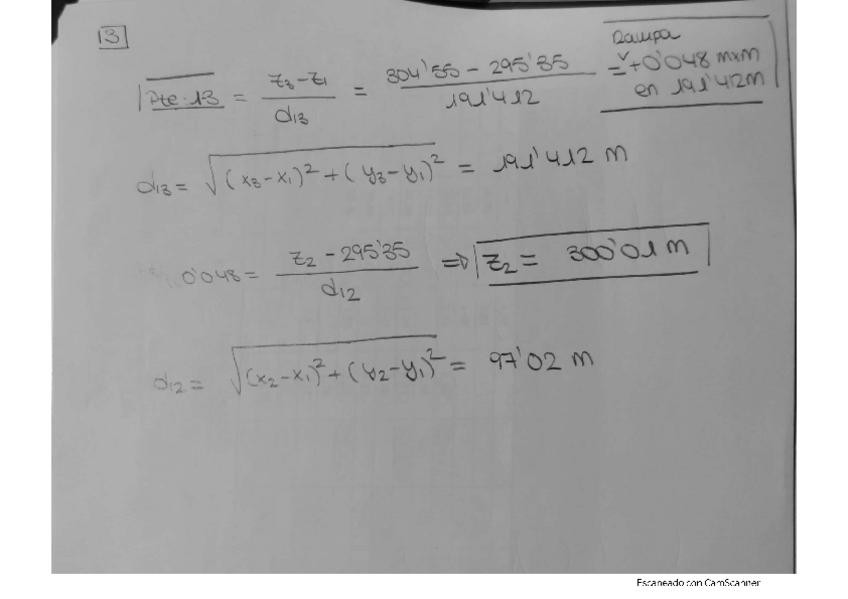 13
Pte 13 = z₃-z₁ / d₁₃ = 304'55 - 295'35 / 191'412
Rampa
= +0'048 mxm
en 191'412m
d₁₃ = √(x₃-x₁)² + (y₃-y₁)² = 191'412 m
0'048 = z₂ - 295'35 / d₁₂ => z₂ = 300'01 m
d₁₂ = √(x₂-x₁)² + (y₂-y₁)² = 97'02 m
Escaneado con CamScanner